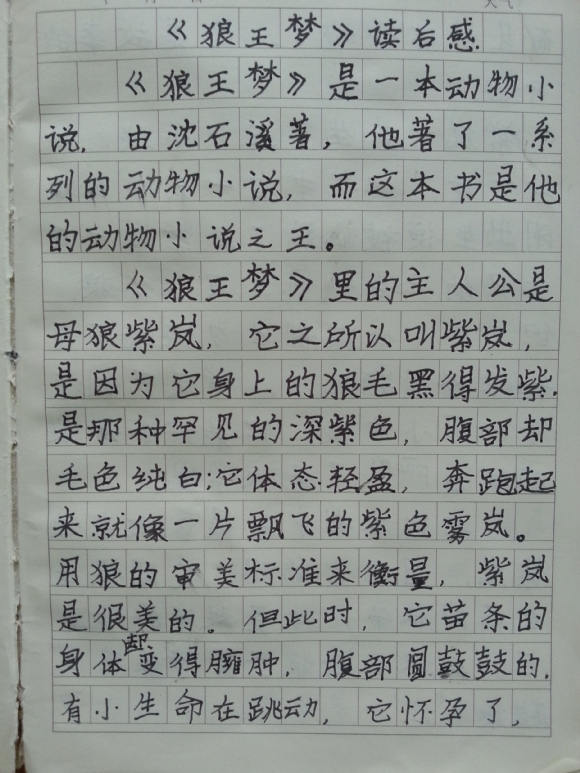 《狼王梦》读后感
《狼王梦》是一本动物小
说，由沈石溪著，他著了一系
列的动物小说，而这本书是他
的动物小说之王。
《狼王梦》里的主人公是
母狼紫岚，它之所以叫紫岚，
是因为它身上的狼毛黑得发紫.
是那种罕见的深紫色，腹部却
毛色纯白；它体态轻盈，奔跑起
来就像一片飘飞的紫色雾岚。
用狼的审美标准来衡量，紫岚
是很美的。但此时，它苗条的
身体却变得臃肿，腹部圆鼓鼓的，
有小生命在跳动，它怀孕了，